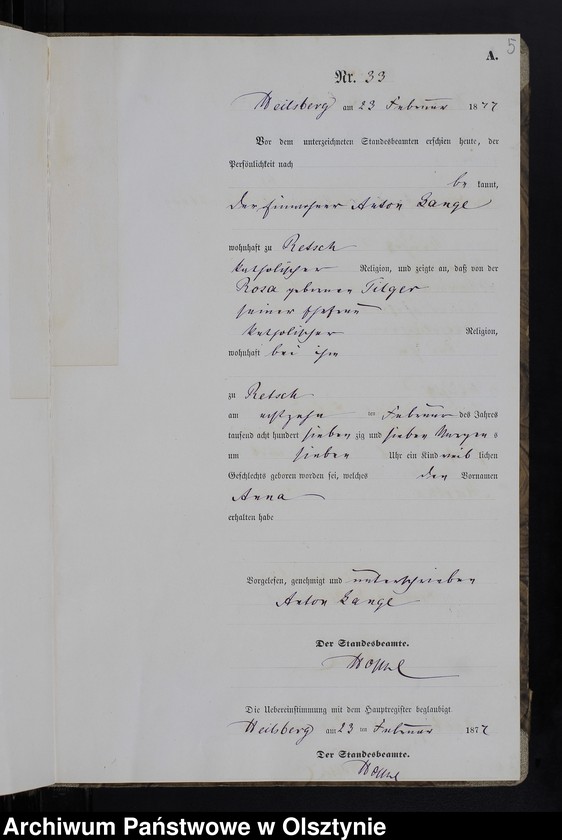 5
A.
Nr. 33
Heilsberg am 23 Februar 1877
Vor dem unterzeichneten Standesbeamten erschien heute, der
Persönlichkeit nach
be kannt,
der Einwohner Anton Lange
wohnhaft zu Retsch
katholischer Religion, und zeigte an, daß von der
Rosa geborenen Tilger
seiner Ehefrau
katholischer Religion,
wohnhaft bei ihm
zu Retsch
am achtzehn ten Februar des Jahres
tausend acht hundert sieben zig und sieben Morgens
um sieben Uhr ein Kind weib lichen
Geschlechts geboren worden sei, welches den Vornamen
Anna
erhalten habe
Vorgelesen, genehmigt und unterschrieben
Anton Lange
Der Standesbeamte.
Die Uebereinstimmung mit dem Hauptregister beglaubigt
Heilsberg am 23 ten Februar 1877
Der Standesbeamte.
Archiwum Państwowe w Olsztynie